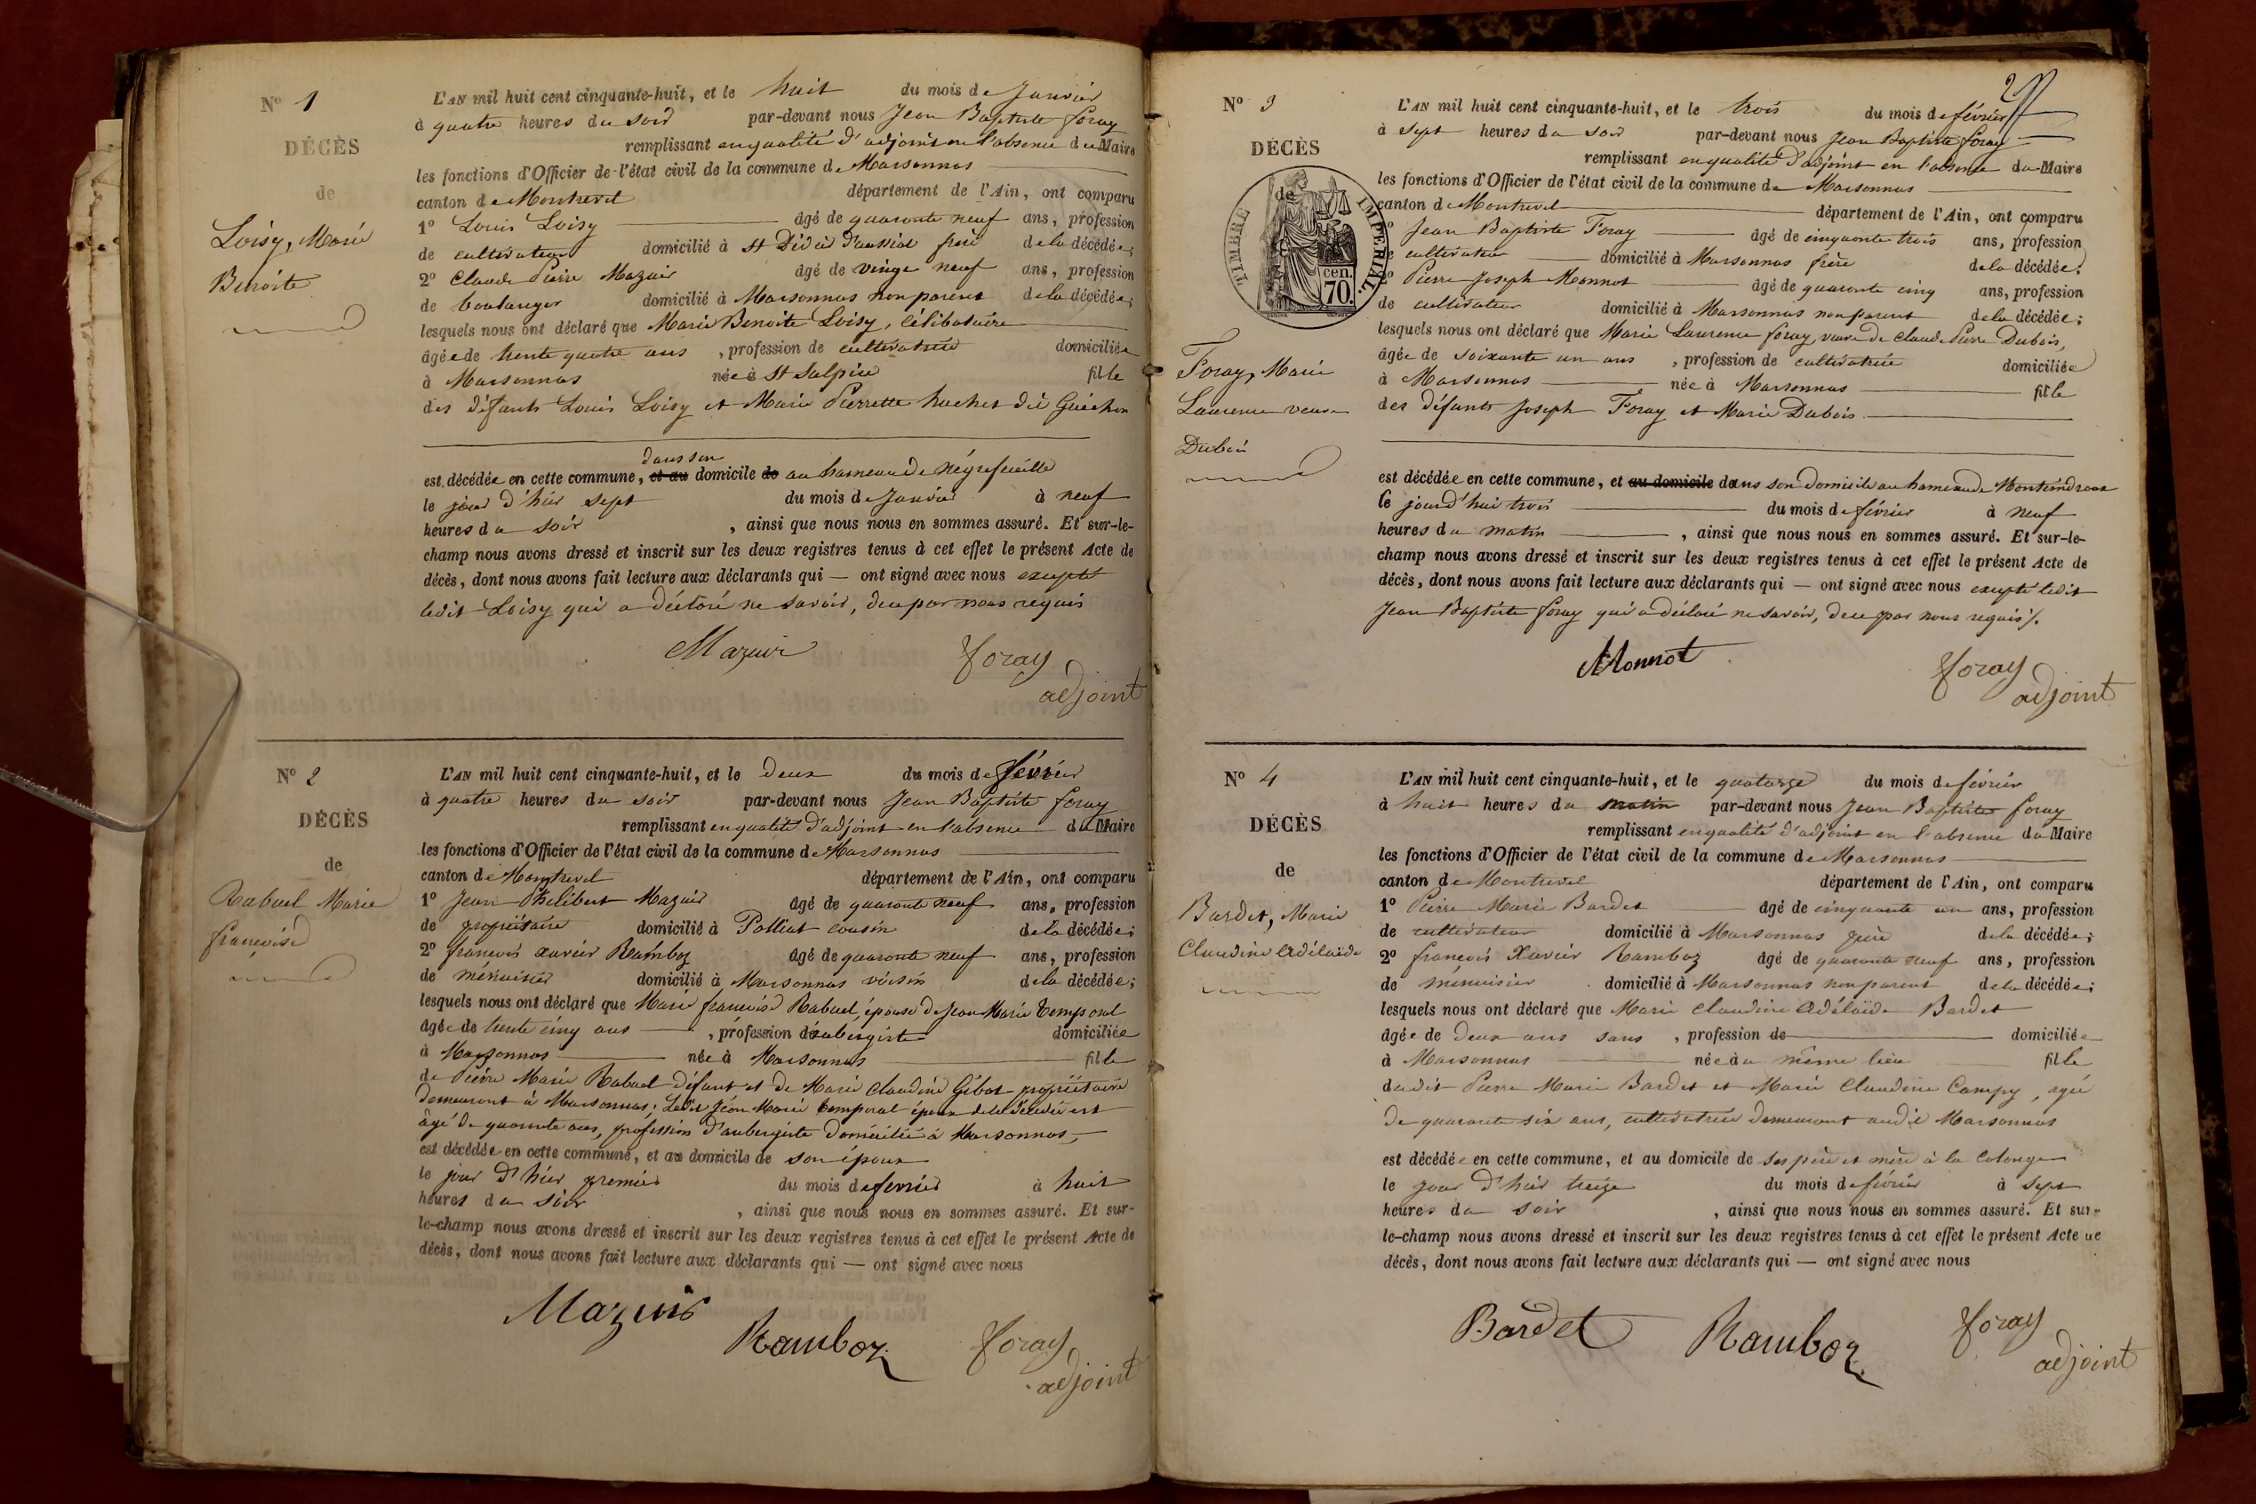 N° 1
DÉCÈS
de
Loisy, Marie
Benoite
L'AN mil huit cent cinquante-huit, et le huit du mois de Janvier
à quatre heures du soir par-devant nous Jean Baptiste foray
remplissant en qualité d'adjoint en l'absence du Maire
les fonctions d'Officier de l'état civil de la commune de Marsonnas
canton de Montrevel département de l'Ain, ont comparu
1° Louis Loisy âgé de quarante neuf ans, profession
de cultivateur domicilié à St Didier d'aussiat frère de la décédée;
2° Claude Pierre Mazuir âgé de vingt neuf ans, profession
de boulanger domicilié à Marsonnas non parent de la décédée;
lesquels nous ont déclaré que Marie Benoite Loisy, célibataire
âgée de trente quatre ans, profession de cultivatrice domiciliée
à Marsonnas née à St Sulpice fille
des défunts Louis Loisy et Marie Pierrette huchet dit Guichon
dans son
est décédée en cette commune, et au domicile de au hameau de Négrefeuille
le jour d'hier sept du mois de Janvier à neuf
heures du soir, ainsi que nous nous en sommes assuré. Et sur-le-
champ nous avons dressé et inscrit sur les deux registres tenus à cet effet le présent Acte de
décès, dont nous avons fait lecture aux déclarants qui — ont signé avec nous excepté
ledit Loisy qui a déclaré ne savoir, de ce par nous requis
Mazuir foray
adjoint
N° 2
DÉCÈS
de
Rabuel Marie
françoise
L'AN mil huit cent cinquante-huit, et le deux du mois de février
à quatre heures du soir par-devant nous Jean Baptiste foray
remplissant en qualité d'adjoint en l'absence du Maire
les fonctions d'Officier de l'état civil de la commune de Marsonnas
canton de Montrevel département de l'Ain, ont comparu
1° Jean Philibert Mazuir âgé de quarante neuf ans, profession
de propriétaire domicilié à Polliat cousin de la décédée;
2° françois xavier Ramboz âgé de quarante neuf ans, profession
de menuisier domicilié à Marsonnas voisin de la décédée;
lesquels nous ont déclaré que Marie françoise Rabuel, épouse de Jean Marie Temporal
âgée de trente cinq ans, profession d'aubergiste domiciliée
à Marsonnas née à Marsonnas fille
de Pierre Marie Rabuel défunt et de Marie Claudine Gibot propriétaire
demeurant à Marsonnas; Ledit Jean Marie Temporal époux de la décédée est
âgé de quarante ans, profession d'aubergiste domicilié à Marsonnas,
est décédée en cette commune, et au domicile de son époux
le jour d'hier premier du mois de fevrier à huit
heures du soir, ainsi que nous nous en sommes assuré. Et sur-
le-champ nous avons dressé et inscrit sur les deux registres tenus à cet effet le présent Acte de
décès, dont nous avons fait lecture aux déclarants qui — ont signé avec nous
Mazuir
Ramboz foray
adjoint
N° 3
DÉCÈS
de
TIMBRE IMPÉRIAL
cen.
70.
Foray, Marie
Laurence veuve
Dubois
L'AN mil huit cent cinquante-huit, et le trois du mois de février
à sept heures du soir par-devant nous Jean Baptiste foray
remplissant en qualité d'adjoint en l'absence du Maire
les fonctions d'Officier de l'état civil de la commune de Marsonnas
canton de Montrevel département de l'Ain, ont comparu
Jean Baptiste Foray âgé de cinquante trois ans, profession
cultivateur domicilié à Marsonnas frère de la décédée;
Pierre Joseph Monnot âgé de quarante cinq ans, profession
de cultivateur domicilié à Marsonnas non parent de la décédée;
lesquels nous ont déclaré que Marie Laurence foray, veuve de Claude Pierre Dubois,
âgée de soixante un ans, profession de cultivatrice domiciliée
à Marsonnas née à Marsonnas fille
des défunts Joseph Foray et Marie Dubois
est décédée en cette commune, et au domicile dans son domicile au hameau de
le jourd'hui trois du mois de février à neuf
heures du matin, ainsi que nous nous en sommes assuré. Et sur-le-
champ nous avons dressé et inscrit sur les deux registres tenus à cet effet le présent Acte de
décès, dont nous avons fait lecture aux déclarants qui — ont signé avec nous excepté ledit
Jean Baptiste foray qui a déclaré ne savoir, de ce par nous requis /.
Monnot foray
adjoint
N° 4
DÉCÈS
de
Bardet, Marie
Claudine Adélaïde
L'AN mil huit cent cinquante-huit, et le quatorze du mois de février
à huit heures du matin par-devant nous Jean Baptiste foray
remplissant en qualité d'adjoint en l'absence du Maire
les fonctions d'Officier de l'état civil de la commune de Marsonnas
canton de Montrevel département de l'Ain, ont comparu
1° Pierre Marie Bardet âgé de cinquante un ans, profession
de cultivateur domicilié à Marsonnas père de la décédée;
2° françois Xavier Ramboz âgé de quarante neuf ans, profession
de menuisier domicilié à Marsonnas non parent de la décédée;
lesquels nous ont déclaré que Marie Claudine Adélaïde Bardet
âgée de deux ans sans, profession de domiciliée
à Marsonnas née au même lieu fille
dudit Pierre Marie Bardet et Marie Claudine Campy, agée
de quarante six ans, cultivatrice demeurant audit Marsonnas
est décédée en cette commune, et au domicile de ses père et mère à la
le jour d'hier treize du mois de février à sept
heures du soir, ainsi que nous nous en sommes assuré. Et sur-
le-champ nous avons dressé et inscrit sur les deux registres tenus à cet effet le présent Acte de
décès, dont nous avons fait lecture aux déclarants qui — ont signé avec nous
Bardet Ramboz foray
adjoint